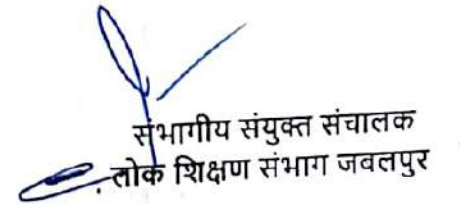 संभागीय संयुक्त संचालक
लोक शिक्षण संभाग जबलपुर